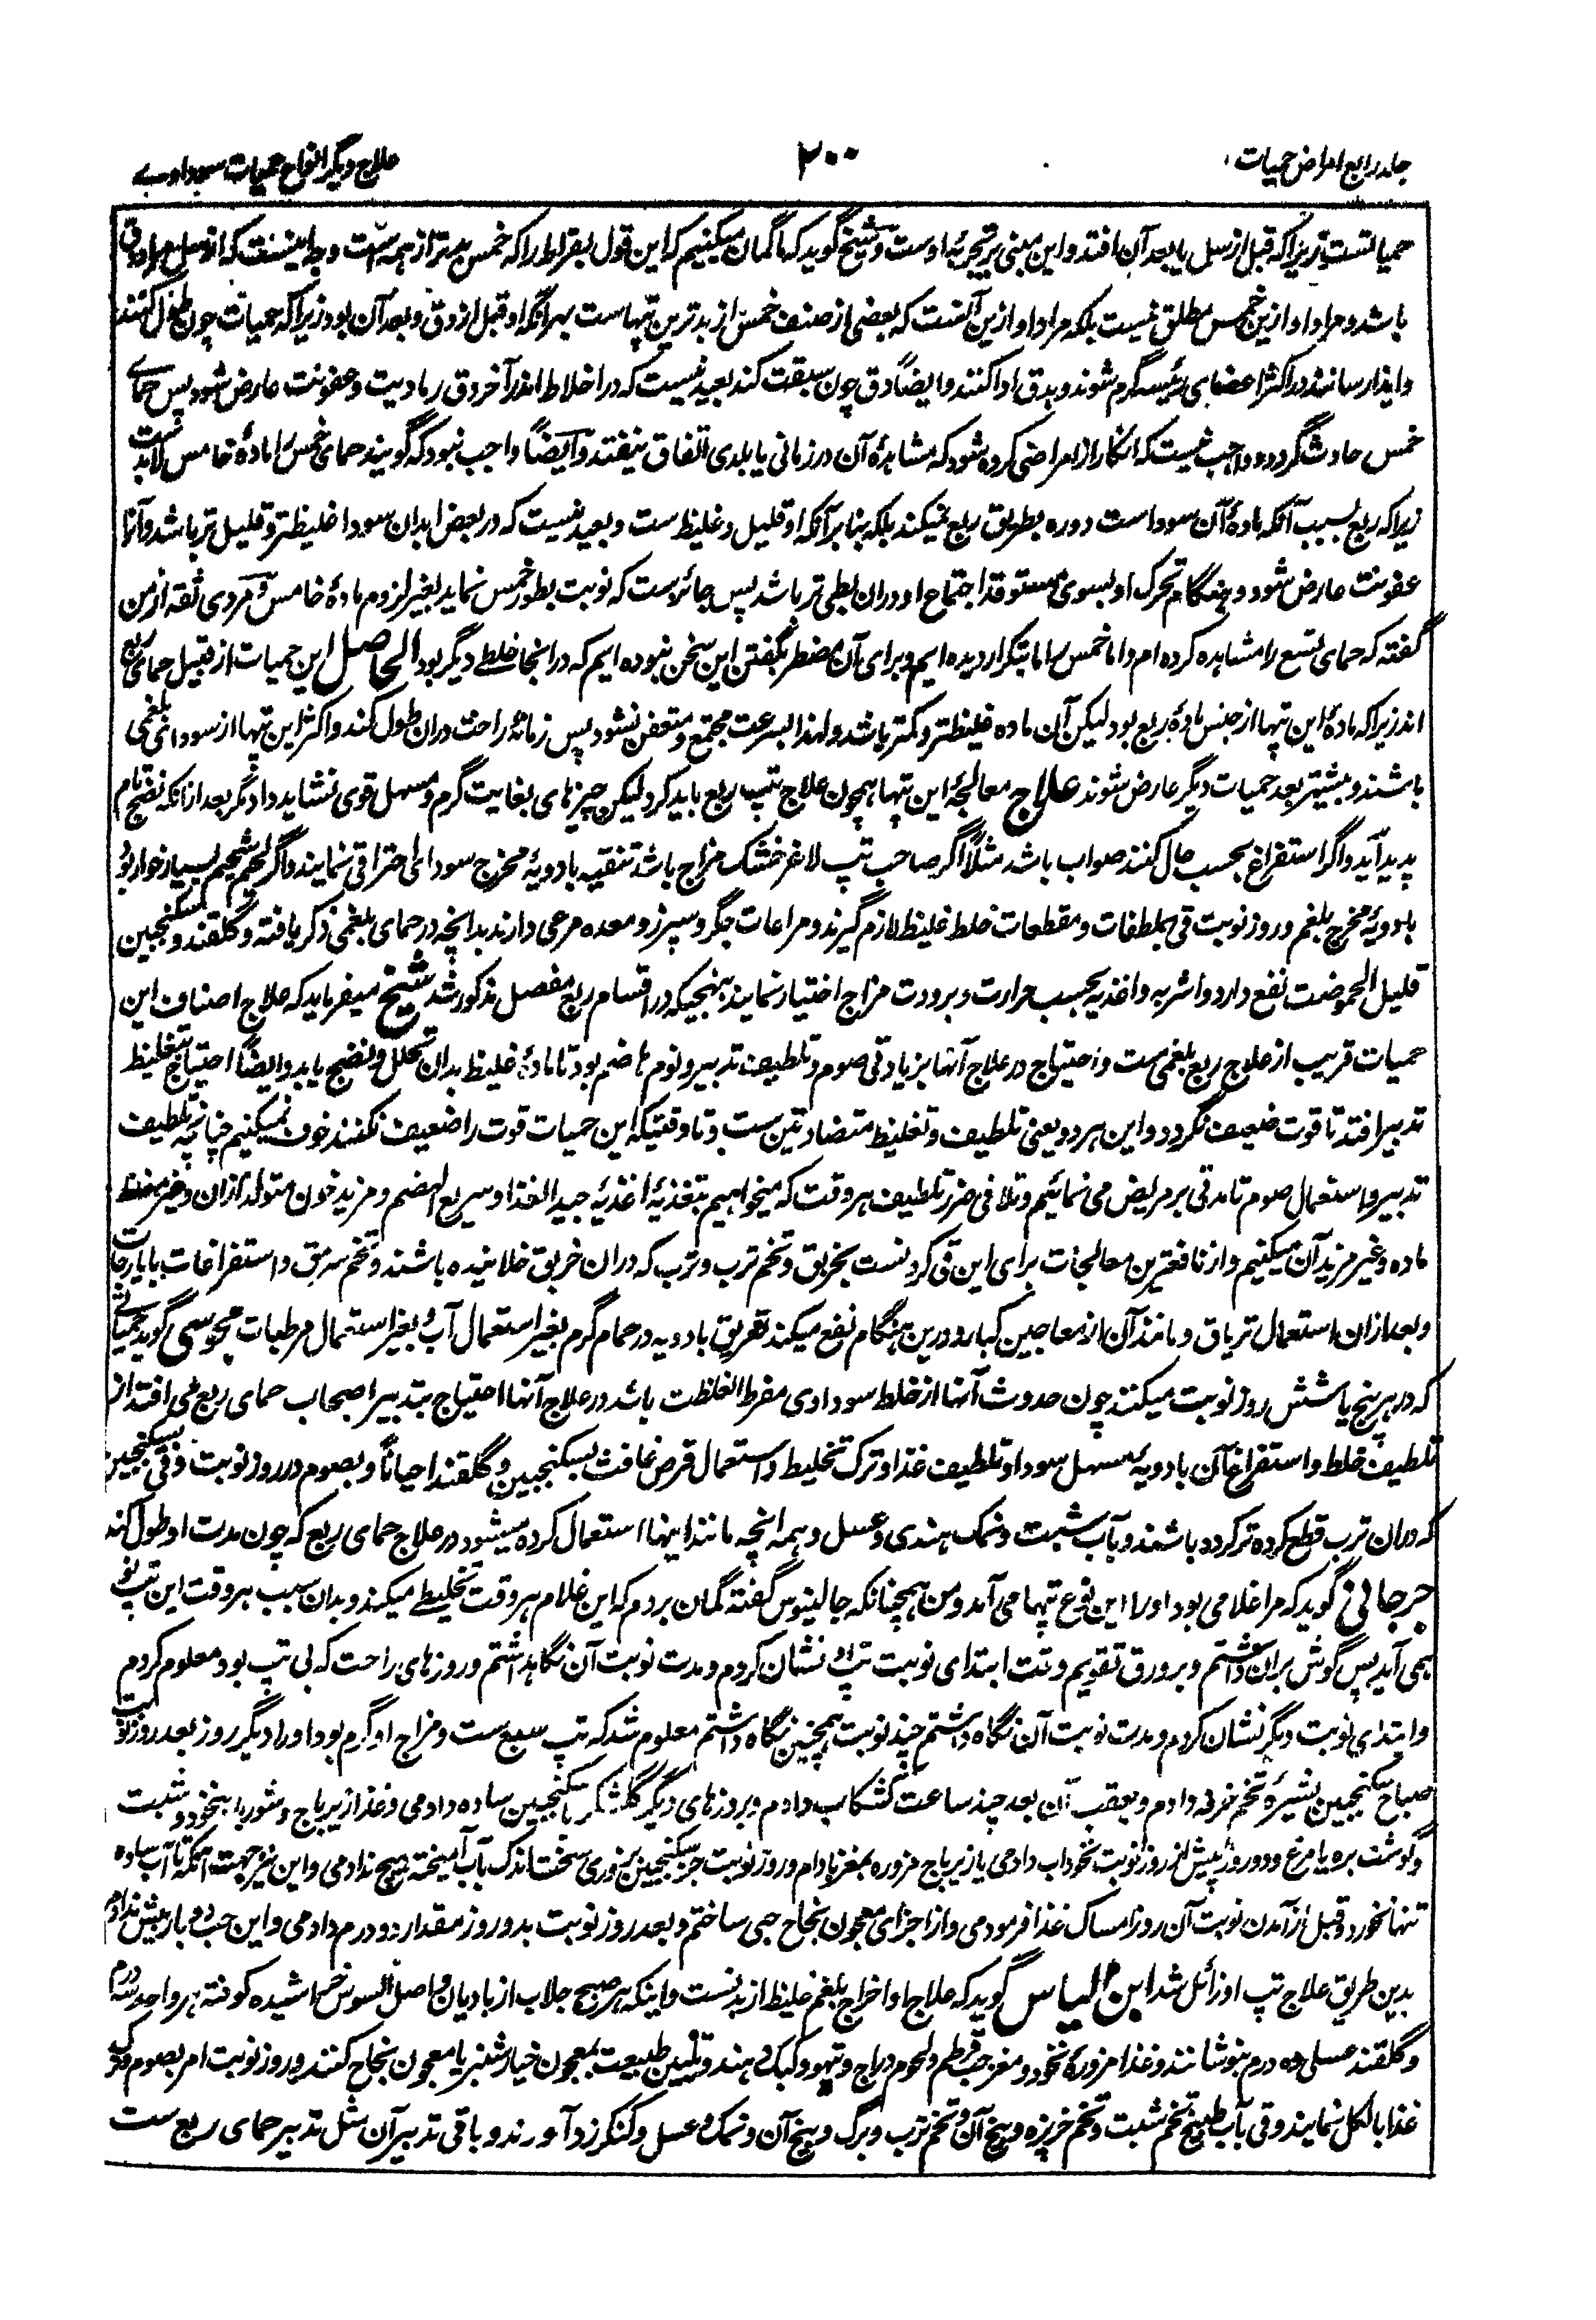 جلد رابع امراض حمیات
۲۰۰
علاج دیگر انواع حمیات سوداوی
حمیاتست زیرا که قبل از سل یا بعد آن افتد و این مبنی بر تجربهٔ اوست و شیخ گوید که ما گمان میکنیم که این قول بقراط را که خمس بدتر از همه است وجه اینست که از وسل مراد دق
باشد و مراد او ازین خمس مطلق نیست بلکه مراد او ازین آنست که بعضی از صنف خمس از بدترین تپهاست بهر آنکه او قبل از دق و بعد آن بود زیرا که حمیات چون طول کنند
و ایذا رسانند در اکثر اعضای رئیسه گرم شوند و بدق ادا کنند و ایضاً دق چون سبقت کند بعید نیست که در اخلاط اندر آخر دق رمادیت و عفونت عارض شود پس حمای
خمس حادث گردد و واجب نیست که انکار از امراضی کرده شود که مشاهدهٔ آن در زمانی یا بلدی اتفاق نیفتد و ایضاً واجب نبود که گویند حمای خمس را مادهٔ خامس لابدست
زیرا که ربع بسبب آنکه مادهٔ آن سوداست دوره بطریق ربع نمیکند بلکه بنا بر آنکه او قلیل و غلیظ ست و بعید نیست که در بعض ابدان سودا غلیظتر و قلیل تر باشد و آنرا
عفونت عارض شود و هنگام تحرک او بسوی مستوقد اجتماع او دران بطی تر باشد پس جائز ست که نوبت بطور خمس نماید بغیر لزوم مادهٔ خامس و مردی ثقه از من
گفته که حمای تسع را مشاهده کرده ام و اما خمس را ما بتکرار دیده ایم و برای آن مضطر بگفتن این سخن نبوده ایم که در اینجا خلطی دیگر بود الحاصل این حمیات از قبیل حمای ربع
اند زیرا که مادهٔ این تپها از جنس مادهٔ ربع بود لیکن آن ماده غلیظتر و کمتر باشد و لهذا بسرعت مجتمع و متعفن نشود پس زمانهٔ راحت دران طول کند و اکثر این تپها از سودای بلغمی
باشند و بیشتر بعد حمیات دیگر عارض شوند علاج معالجهٔ این تپها همچون علاج تپ ربع باید کرد لیکن چیزهای بغایت گرم و مسهل قوی نشاید داد مگر بعد ازانکه نضج تام
پدید آید و اگر استفراغ بحسب حال کنند صواب باشد مثلاً اگر صاحب تپ لاغر خشک مزاج باشد تنقیه بادویهٔ مخرج سودای احتراقی نمایند و اگر لحیم شحیم بسیار خوار بود
بادویهٔ مخرج بلغم و روز نوبت قی بملطفات و مقطعات خلط غلیظ لازم گیرند و مراعات جگر و سپرز و معده مرعی دارند بدانچه در حمای بلغمی ذکر یافته و گلقند و سکنجبین
قلیل الحموضت نفع دارد و اشربه و اغذیه بحسب حرارت و برودت مزاج اختیار نمایند بنهجیکه در اقسام ربع مفصل مذکور شد شیخ میفرماید که علاج اصناف این
حمیات قریب از علاج ربع بلغمی ست و احتیاج در علاج آنها بزیادتی صوم و تلطیف تدبیر و نوم هاضم بود تا مادهٔ غلیظ بدان تحلل و نضج یابد و ایضاً احتیاج بتغلیظ
تدبیر افتد تا قوت ضعیف نگردد و این هر دو یعنی تلطیف و تغلیظ متضادتین ست و تا وقتیکه این حمیات قوت را ضعیف نکنند خوف نمیکنیم چنانچه تلطیف
تدبیر و استعمال صوم تا مدتی بر مریض می نمائیم و تلافی ضرر تلطیف هر وقت که میخواهیم بتغذیهٔ اغذیهٔ جید الغذا و سریع الهضم و مزید خون متولد ازان و غیر مغلظ
ماده و غیر مزید آن میکنیم و از نافعترین معالجات برای این قی کردنست بخربق و تخم ترب و ترب که دران خربق خلانیده باشند و تخم سرمق و استفراغات بایارجات
و بعد ازان استعمال تریاق و مانند آن از معاجین کبار و درین هنگام نفع میکند تعریق بادویه در حمام گرم بغیر استعمال آب و بغیر استعمال مرطبات مجوسی گوید حمیاتی
که در هر پنج یا شش روز نوبت میکنند چون حدوث آنها از خلط سوداوی مفرط الغلظت باشد در علاج آنها احتیاج بتدبیر اصحاب حمای ربع می افتد از
تلطیف خلط و استفراغ آن بادویهٔ مسهل سودا و تلطیف غذا و ترک تخلیط و استعمال قرص غافث بسکنجبین و گلقند احیاناً و بصوم در روز نوبت و قی بسکنجبین
که دران ترب قطع کرده تر کرده باشند و بآب شبت و نمک هندی و عسل و همه انچه مانند اینها استعمال کرده میشود در علاج حمای ربع که چون مدت او طول کند
جرجانی گوید که مرا غلامی بود او را این نوع تپها می آمد و من همچنانکه جالینوس گفته گمان بردم که این غلام هر وقت تخلیطی میکند و بدان سبب هر وقت این تپ نو
همی آید پس گوش بران داشتم و بر ورق تقویم وقت ابتدای نوبت تپ او نشان کردم و مدت نوبت آن نگاهداشتم و روزهای راحت که بی تپ بود معلوم کردم
و ابتدای نوبت دیگر نشان کردم و مدت نوبت آن نگاه داشتم چند نوبت همچنین نگاه داشتم معلوم شد که تپ سبع ست و مزاج او گرم بود او را دیگر روز بعد روز نوبت
صباح سکنجبین بشیرهٔ تخم خرفه دادم و بعقب آن بعد چند ساعت کشکاب دادم و بروزهای دیگر گلشکر با سکنجبین ساده دادمی و غذا زیرباج و شوربا بنخود و شبت
و گوشت بره یا مرغ و دو روز پیش از روز نوبت نخوداب دادمی یا زیرباج مزوره بمغز بادام و روز نوبت جز سکنجبین بزوری سخت اندک بآب آمیخته هیچ ندادمی و این نیز جهت آنکه تا آب ساده
تنها نخورد و قبل از آمدن نوبت آن روز امساک غذا فرمودمی و از اجزای معجون نجاح حبی ساختم و بعد روز نوبت بدو روز مقدار دو درم دادمی و این حب دو بار بیش ندادم
بدین طریق علاج تپ او زائل شد ابن الیاس گوید که علاج او اخراج بلغم غلیظ از بدنست و اینکه هر صبح جلاب از بادیان و اصل السوس خراشیده کوفته هر واحد سه درم
و گلقند عسلی ده درم بنوشانند و غذا مزورهٔ نخود و مغز حب قرطم و لحوم دراج و تیهو و کبک دهند و تلیین طبیعت بمعجون خیارشنبر یا معجون نجاح کنند و روز نوبت امر بصوم و ترک
غذا بالکل نمایند و قی بآب طبیخ تخم شبت و تخم خرپزه و بیخ آن و تخم ترب و برگ و بیخ آن و نمک و عسل و کنکرزد آورند و باقی تدبیر آن مثل تدبیر حمای ربع ست